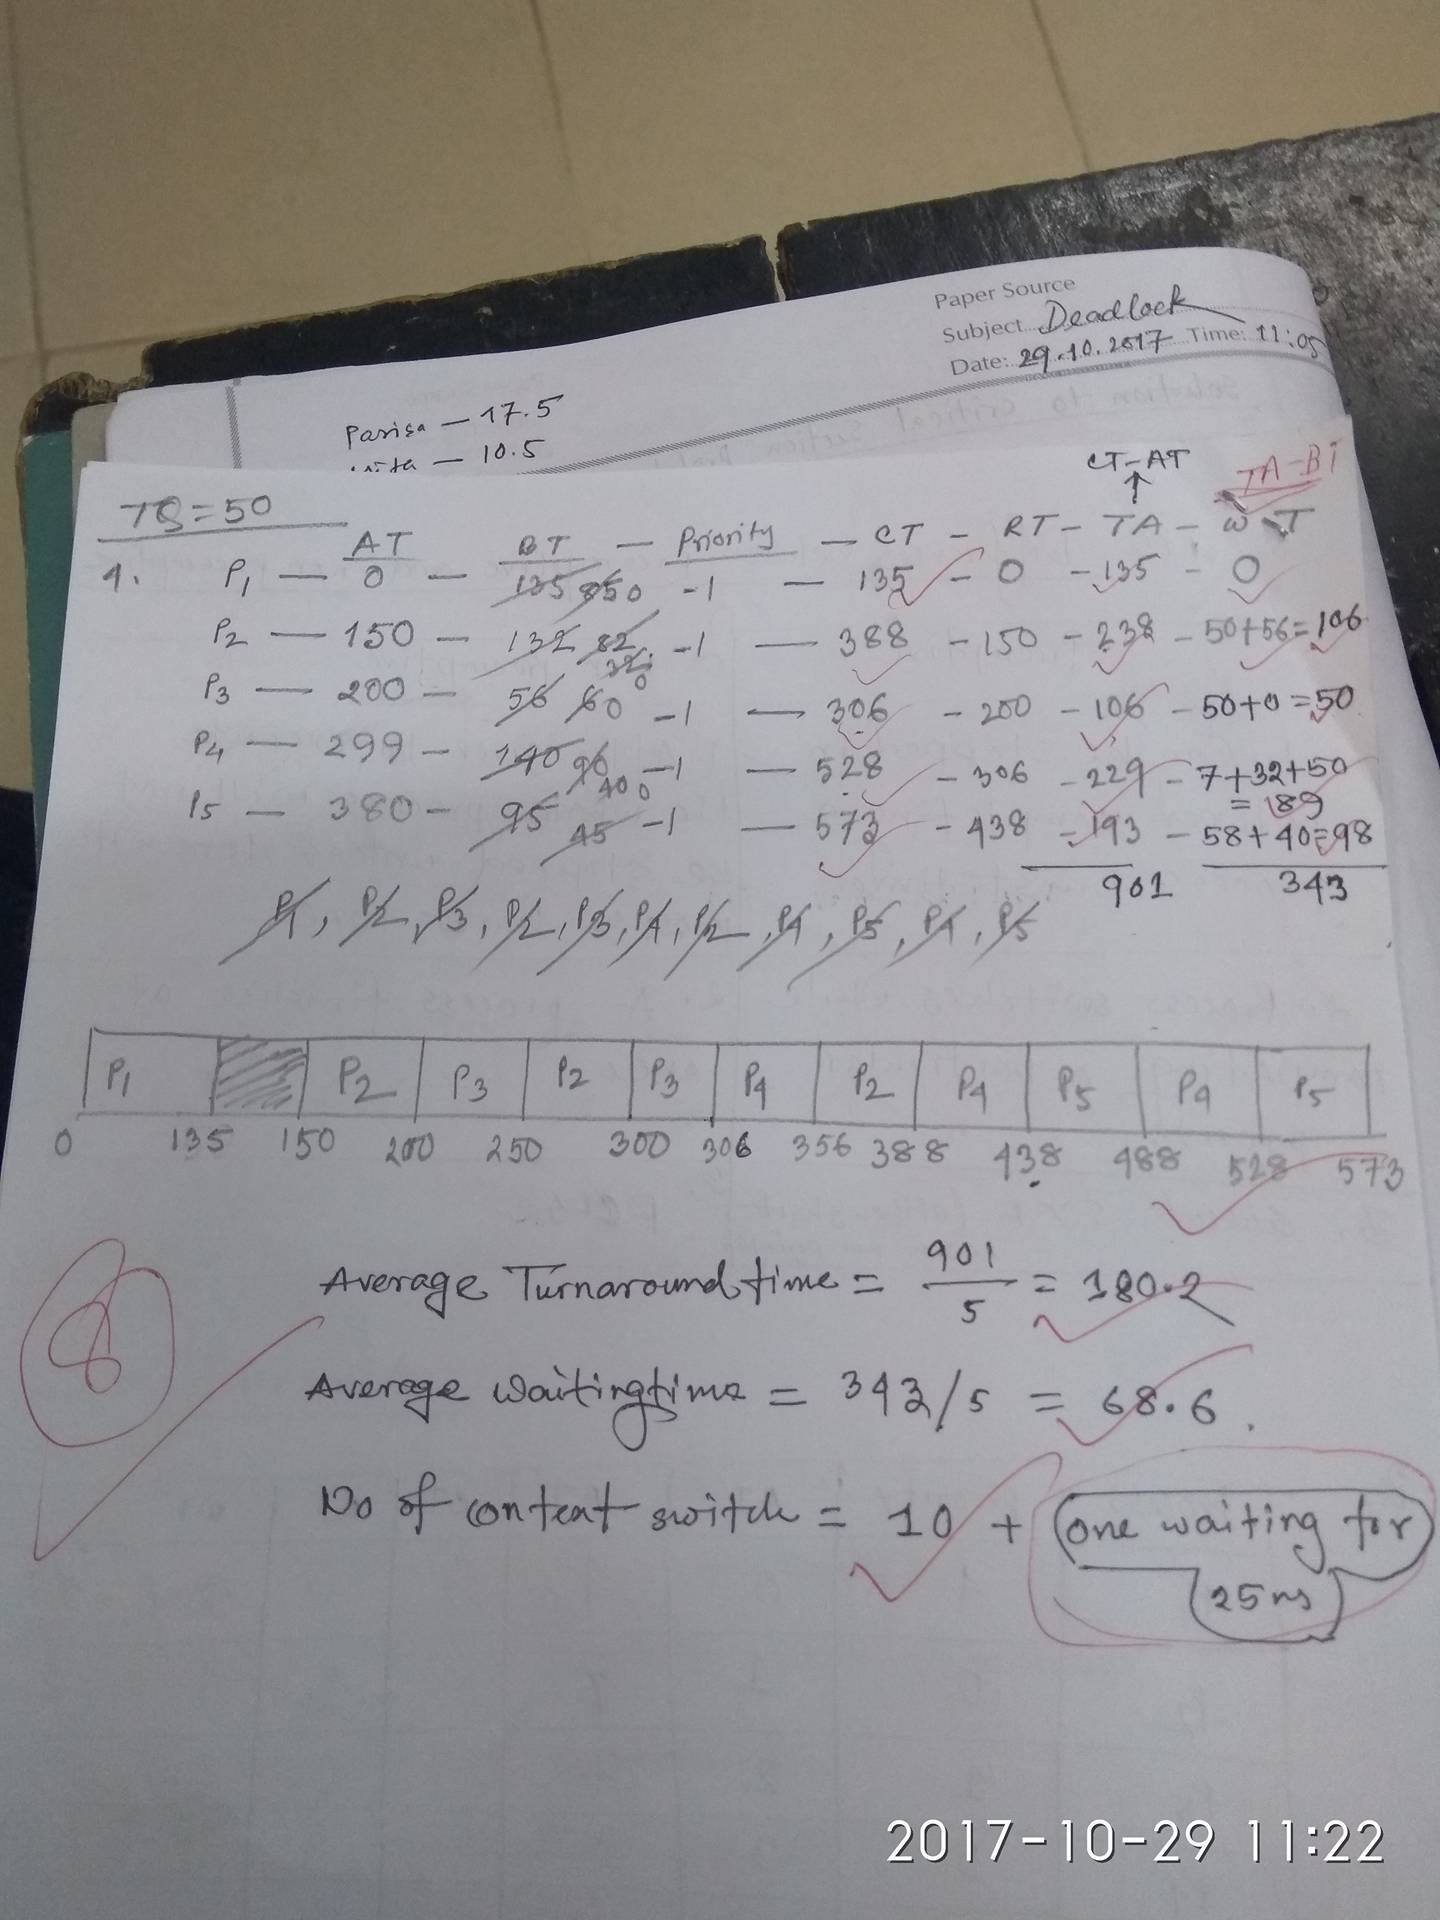 Paper Source
Subject Deadlock
Date: 29.10.2017 Time: 11:05
Parisa — 17.5
— 10.5
CT-AT
TA-BT
TQ=50
AT BT — Priority — CT — RT — TA — WT
1. P1 — 0 — 135 85 0 -1 — 135 — 0 — 135 - 0
P2 — 150 — 132 82 32 0 -1 — 388 — 150 — 238 — 50+56=106
P3 — 200 — 56 6 0 -1 — 306 — 200 — 106 — 50+0=50
P4 — 299 — 140 90 40 0 -1 — 528 — 306 — 229 — 7+32+50
= 89
P5 — 380 — 95 45 -1 — 573 — 438 — 193 — 58+40=98
901 343
P1, P2, P3, P2, P3, P4, P2, P4, P5, P4, P5
P1 P2 P3 P2 P3 P4 P2 P4 P5 P4 P5
0 135 150 200 250 300 306 356 388 438 488 528 573
8
Average Turnaround time = 901/5 = 180.2
Average waitingtime = 343/5 = 68.6.
No of context switch = 10 + one waiting for
25ns
2017-10-29 11:22